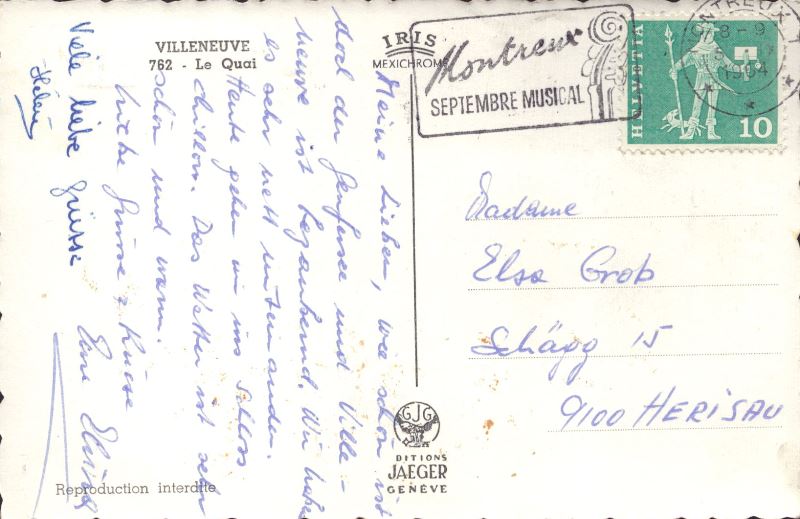 VILLENEUVE
762 - Le Quai
IRIS
MEXICHROME
Montreux
SEPTEMBRE MUSICAL
MONTREUX
1964
HELVETIA
10
Meine Lieben, wie schön ist
doch der Genfersee und Ville-
neuve ist bezaubernd. Wir haben
es sehr nett untereinander.
Heute gehen wir ins Schloss
Chillon. Das Wetter ist sehr
schön und warm.
Liebe Grüsse & Küsse
Eure
Viele liebe Grüsse
Madame
Elsa Grob
Schägg 15
9100 HERISAU
GJG
DITIONS
JAEGER
GENÈVE
Reproduction interdite